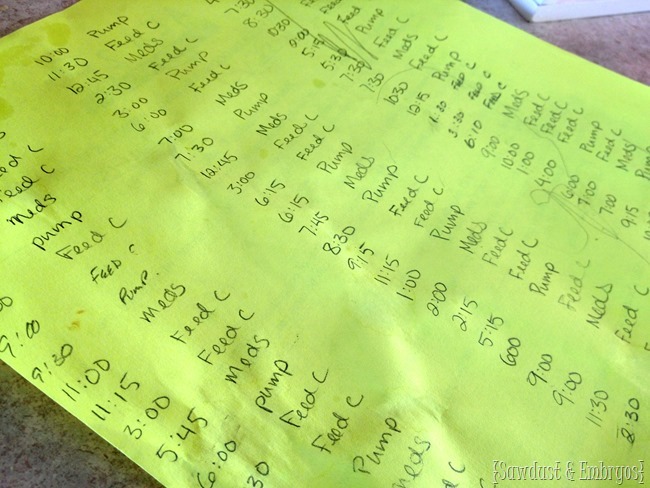 Feed C
Feed C
meds
pump
Feed C
9:00 FEED C
9:30 Pump
11:00 Meds
11:15 Feed C
3:00 Feed C
5:45 Meds
6:00 pump
:30 Feed C
Feed C
Pump
Meds
10:00 Pump
11:30 Feed C
12:45 Meds
2:30 Feed C
3:00 Pump
6:00 Feed C
7:00 Meds
7:30 Pump
12:45 Meds
3:00 Feed C
6:15 Pump
6:15 Meds
7:45 Pump
8:30 Feed C
9:15 Feed C
11:15 Pump
1:00 Meds
2:00 Feed C
2:15 Feed C
5:15 Pump
600 Feed C
9:00 Meds
9:00 Feed C
11:30
2:30
7:30
8:30
9:00
5:15 Feed
5:30 Pump
7:30 Feed C
7:30 Meds
1030 Feed C
12:15 Pump
1:30 FEED C
3:30 FEED C
6:10 FEED C
9:00 Meds
1000 Feed C
1:00 Feed C
4:00 Pump
6:00 Feed C
7:00 Meds
700 Pump
9:15
{Sawdust & Embryos}